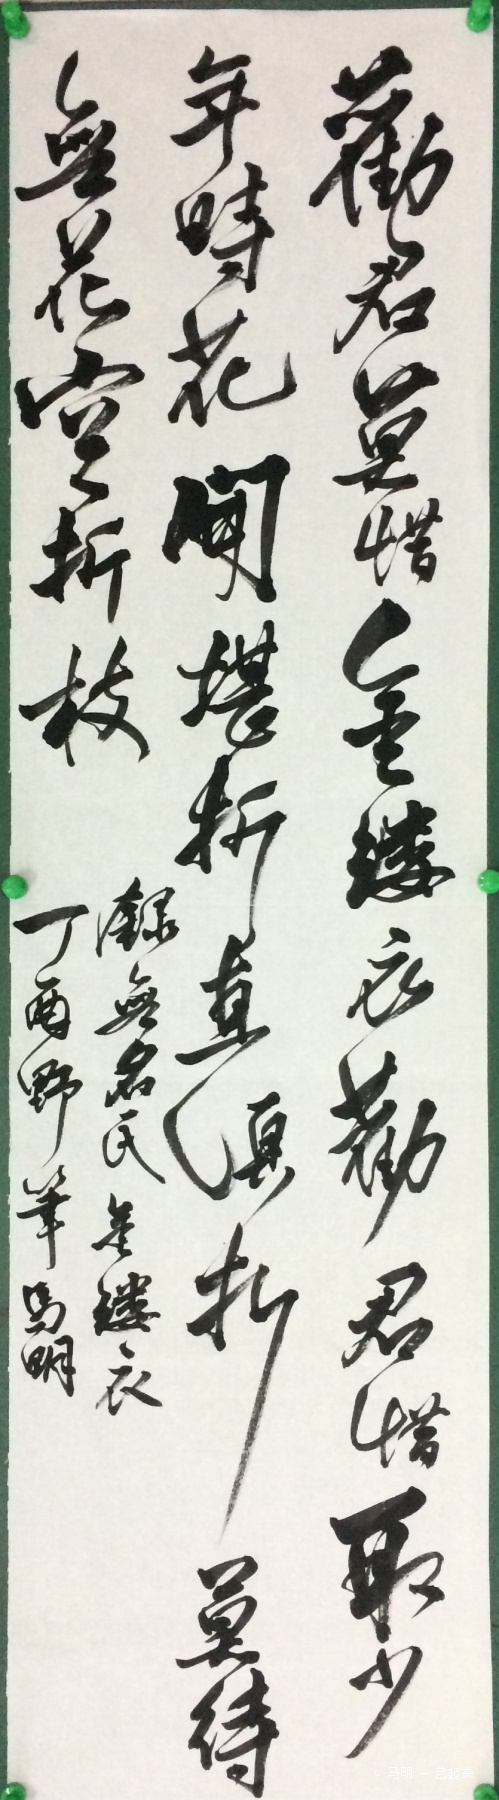 勸君莫惜金縷衣勸君惜取少
年時花開堪折直須折莫待
無花空折枝
錄無名氏金縷衣
丁酉野筆馬明
马明 — 艺起来